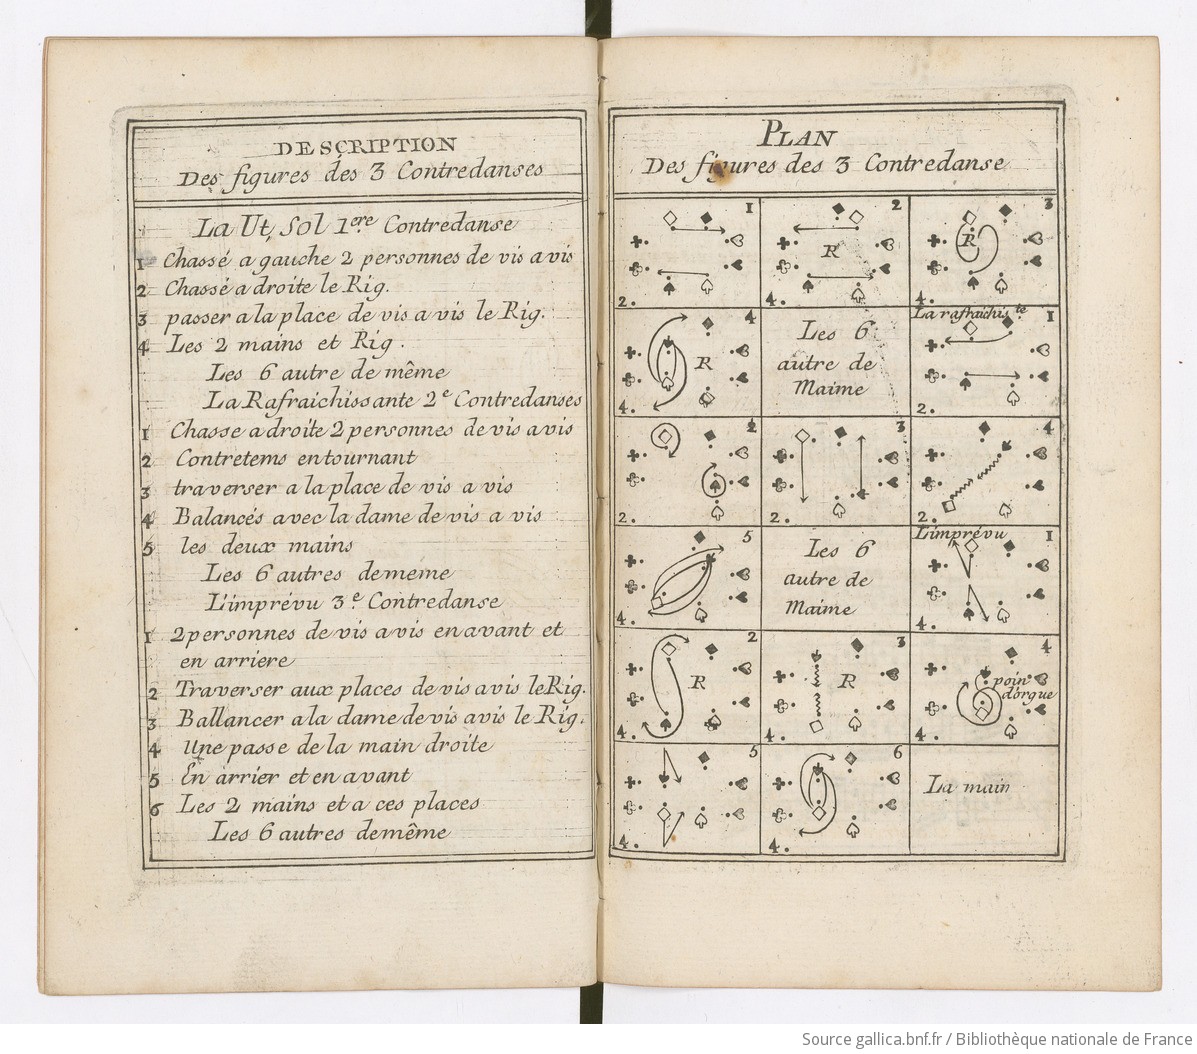 DESCRIPTION
Des figures des 3 Contredanses
La Ut, Sol 1ere Contredanse
1 Chassé a gauche 2 personnes de vis a vis
2 Chassé a droite le Rig.
3 passer a la place de vis a vis le Rig.
4 Les 2 mains et Rig.
Les 6 autre de même
La Rafraichissante 2e Contredanses
1 Chasse a droite 2 personnes de vis a vis
2 Contretems en tournant
3 traverser a la place de vis a vis
4 Balancés avec la dame de vis a vis
5 les deux mains
Les 6 autres de meme
L'imprévu 3e Contredanse
1 2 personnes de vis a vis en avant et
en arriere
2 Traverser aux places de vis a vis le Rig.
3 Ballancer a la dame de vis a vis le Rig.
4 Une passe de la main droite
5 En arrier et en avant
6 Les 2 mains et a ces places
Les 6 autres de même
PLAN
Des figures des 3 Contredanse
1
2.
2
R
4.
3
R
4.
4
R
4.
Les 6
autre de
Maime
La rafraichiste
1
2.
2
2.
3
2.
4
2.
5
4.
Les 6
autre de
Maime
L'imprévu
1
4.
2
R
4.
3
R
4.
4
poin
d'orgue
4.
5
4.
6
4.
La main
Source gallica.bnf.fr / Bibliothèque nationale de France